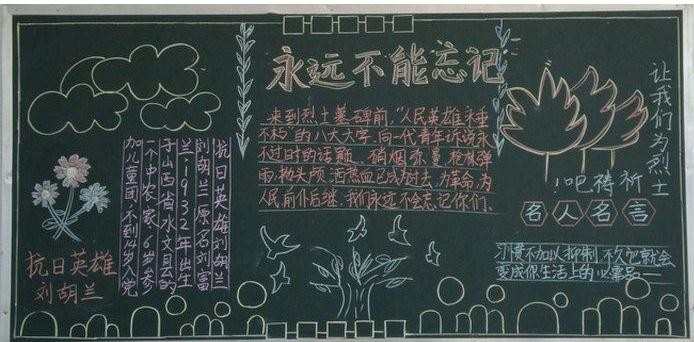 永远不能忘记
抗日英雄刘胡兰
刘胡兰,原名刘富
兰,1932年出生
于山西省水文县的
一个中农家,6岁参
加儿童团,不到14岁入党
抗日英雄
刘胡兰
来到烈士墓碑前,"人民英雄永垂
不朽"的八大大字,向一代青年诉说永
不过时的话题。硝烟弥蔓,枪林弹
雨,抛头颅,洒热血已成为过去,为革命,为
人民,前仆后继,我们永远不会忘记你们。
让我们为烈士
祈祷吧!
名人名言
习惯不加以抑制 不久它就会
变成你生活上的必需品——